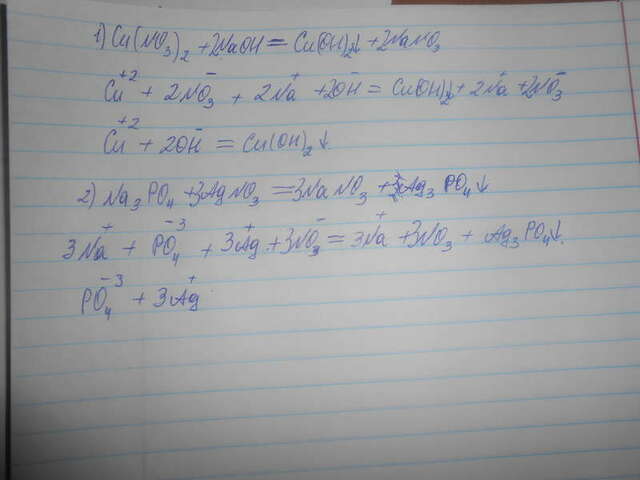 1) Cu(NO₃)₂ + 2NaOH = Cu(OH)₂↓ + 2NaNO₃
Cu⁺² + 2NO₃⁻ + 2Na⁺ + 2OH⁻ = Cu(OH)₂↓ + 2Na⁺ + 2NO₃⁻
Cu⁺² + 2OH⁻ = Cu(OH)₂↓
2) Na₃PO₄ + 3AgNO₃ = 3NaNO₃ + Ag₃PO₄↓
3Na⁺ + PO₄⁻³ + 3Ag⁺ + 3NO₃⁻ = 3Na⁺ + 3NO₃ + Ag₃PO₄↓.
PO₄⁻³ + 3Ag⁺